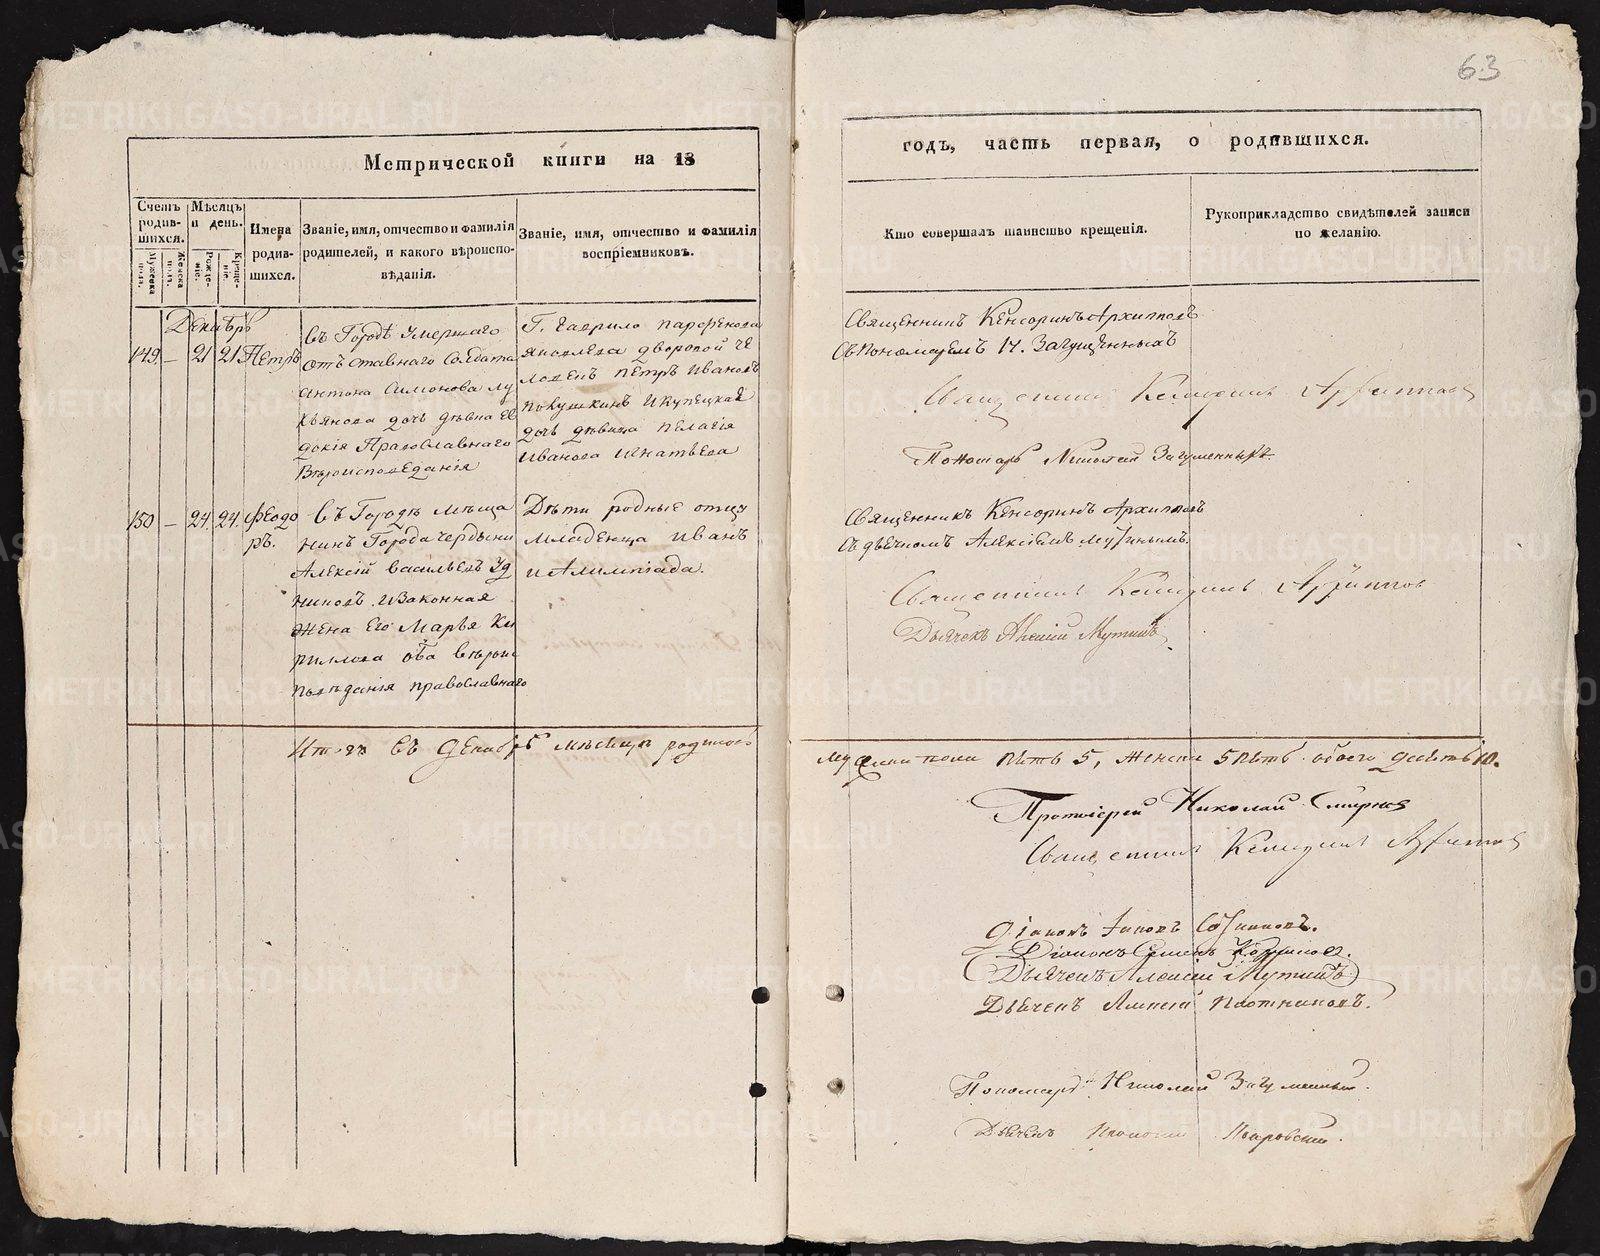 63
Метрической книги на 18
годъ, часть первая, о родившихся.
Счетъ родив- шихся.
Мужеска пола.
Женска пола.
Мѣсяцъ и день.
Рожде- ніе.
Креще- ніе.
Имена родив- шихся.
Званіе, имя, отчество и фамилія
родителей, и какого вѣроиспо-
вѣданія.
Званіе, имя, отчество и фамилія
воспріемниковъ.
Кто совершалъ таинство крещенія.
Рукоприкладство свидѣтелей записи
по желанію.
Декабрь
149 — 21 21 Петръ
Въ Городѣ Умершаго
отъставнаго Солдата
Антона Симонова Лу
кьянова дочь дѣвка Ев
докія Православнаго
Вѣроисповеданія
Г. Гаврило Парфенова
Яковлева дворовой че
ловекъ Петръ Ивановъ
Покушкинъ и купецкая
дочь дѣвица Пелагія
Иванова Игнатьева
Священникъ Кенсоринъ Архиповъ
съ пономаремъ Н. Загуменныхъ
Священникъ Кенсоринъ Архиповъ
Пономарь Николай Загуменныхъ
150 — 24. 24. Феодо
ръ.
Въ Городѣ мѣща
нинъ Города Чердыни
Алексій Васильевъ Уд
никовъ и законная
Жена Его Марья Ки
рилова оба вѣрои
поведанія православнаго
Дѣти родные отцу
младенца Иванъ
и Алимпіада.
Священникъ Кенсоринъ Архиповъ
съ дьячкомъ Алексіемъ Мутинымъ.
Священникъ Кенсоринъ Архиповъ
Дьячекъ Алексій Мутинъ
Итогъ въ Декабрѣ мѣсяцѣ родилось
мужеска пола пять 5, женска 5 пять обоего десять 10.
Протоіерей Николай Смирновъ
Священникъ Кенсоринъ Архиповъ
Діаконъ
Діаконъ
Дьячекъ Алексій Мутинъ
Дьячекъ Алексій Плотниковъ.
Пономарь Николай Загуменныхъ.
Дьячекъ
METRIKI.GASO-URAL.RU